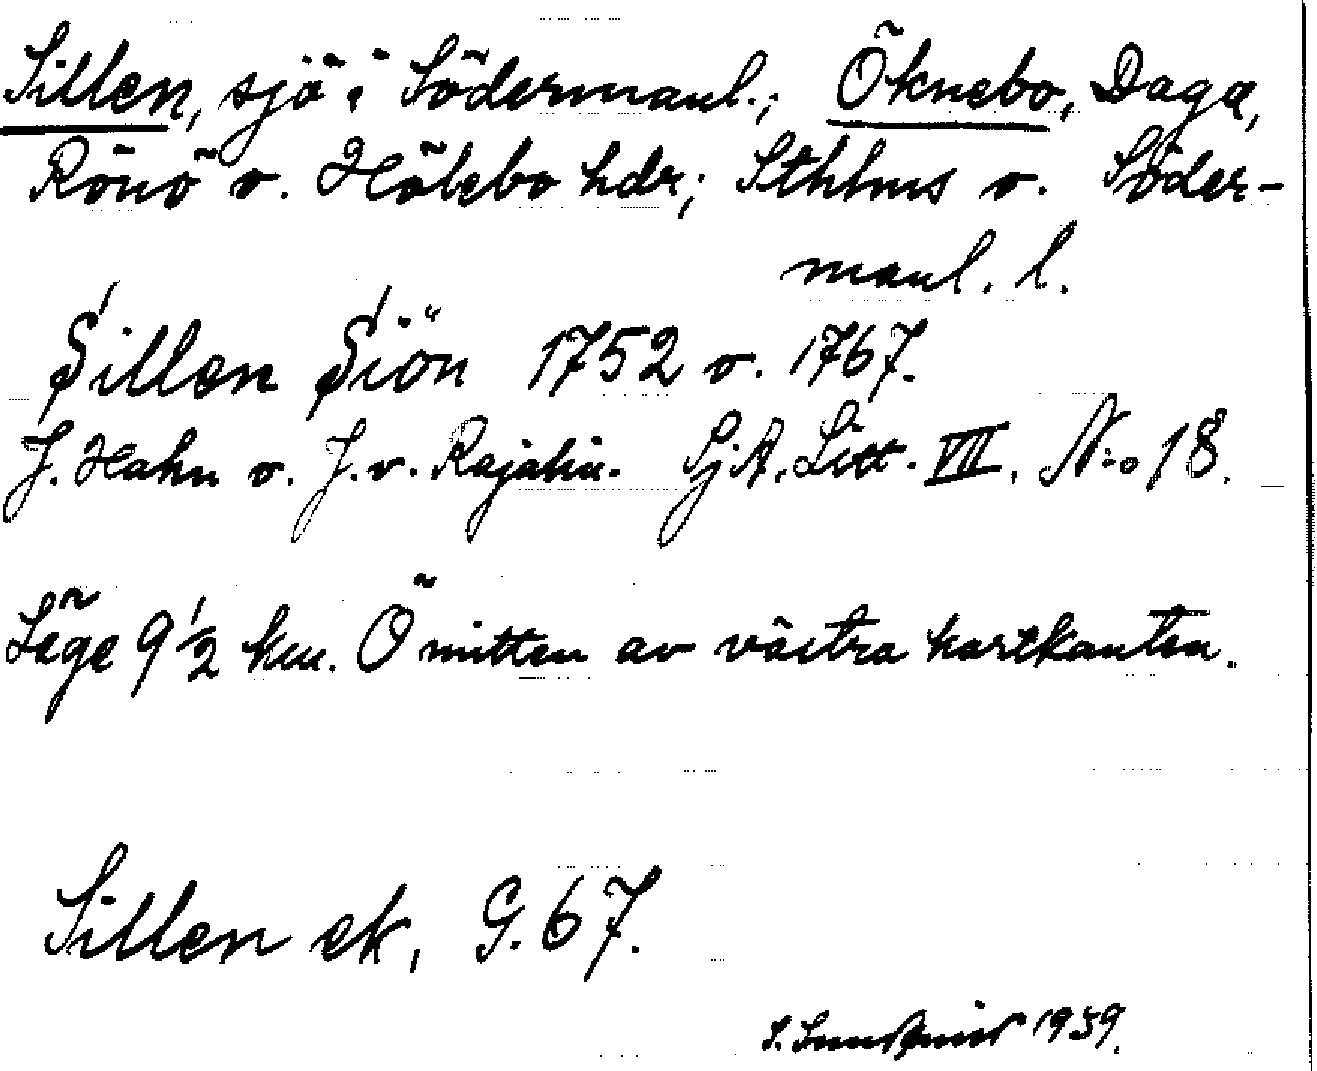 Sillen, sjö i Södermanl.; Öknebo, Daga,
Rönö o. Hölebo hdr; Sthlms o. Söder-
manl. l.
Sillen Siön 1752 o. 1767.
J. Hahn o. J. v. Rajalin. Sj.A. Litt. VII. N:o 18.
Läge 9 1/2 km. Ö mitten av västra kartkanten.
Sillen ek, G. 67.
S. 1939.